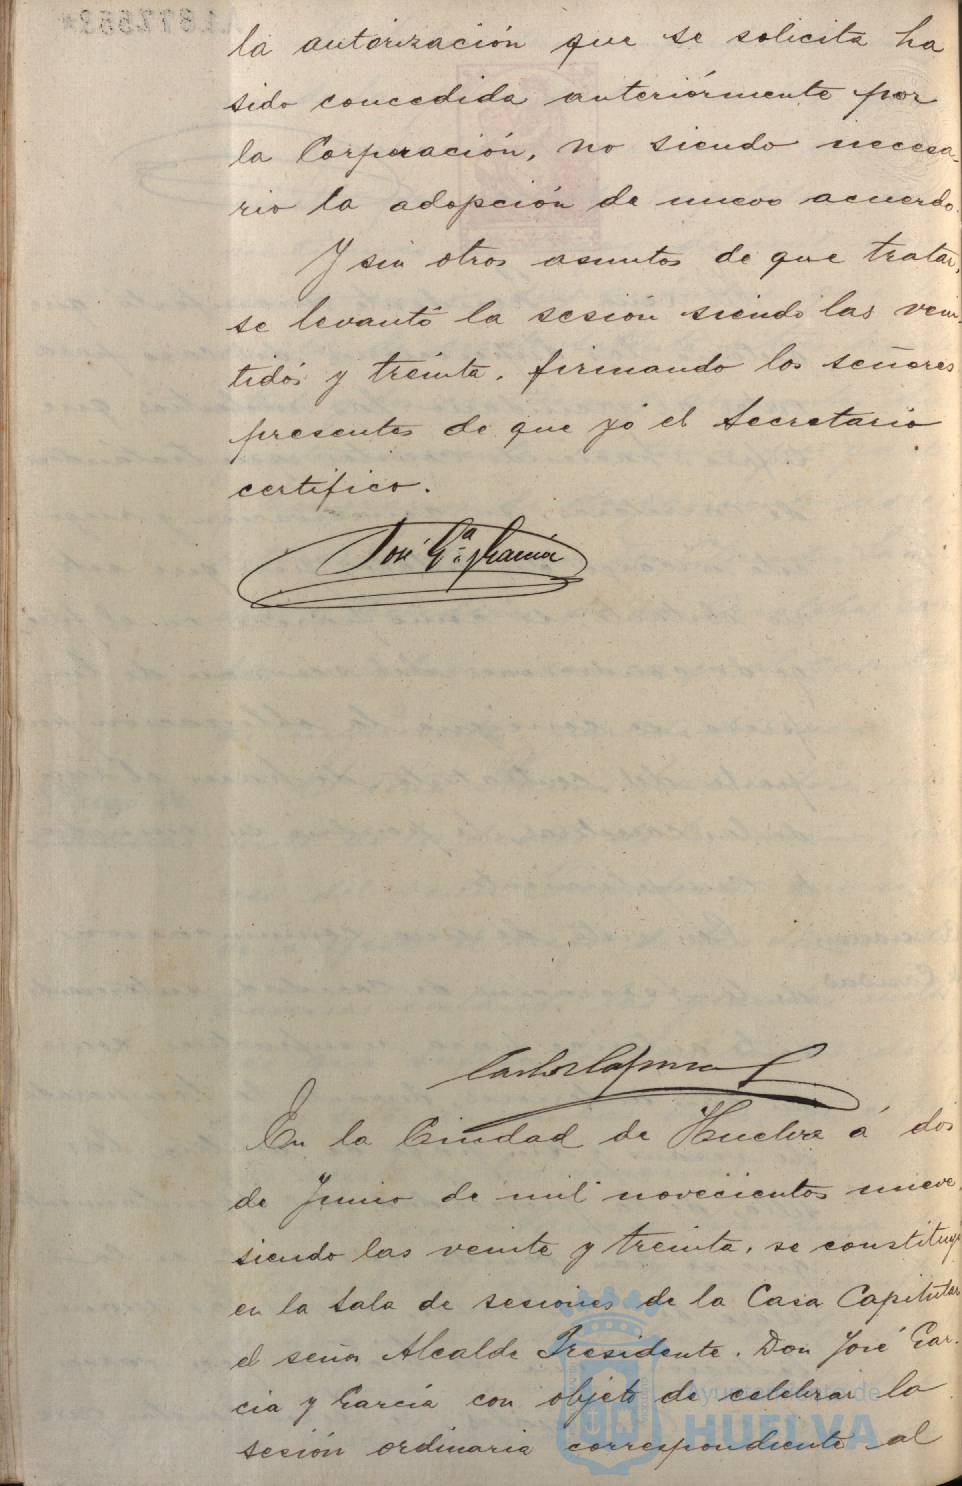 la autorización que se solicita ha
sido concedida anteriórmente por
la Corporación, no siendo necesa-
rio la adopción de nuevo acuerdo.
Y sin otros asuntos de que tratar,
se levantó la sesión siendo las vein-
tidós y treinta, firmando los señores
presentes de que yó el Secretario
certifico.
José G.ª y García
Carlos
En la Ciudad de Huelva á dos
de Junio de mil novecientos nueve,
siendo las veinte y treinta, se constituyó
en la Sala de sesiones de la Casa Capitular
el señor Alcalde Presidente, Don José Gar-
cia y García con objeto de celebrar la
sesión ordinaria correspondiente al
Ayuntamiento de
HUELVA